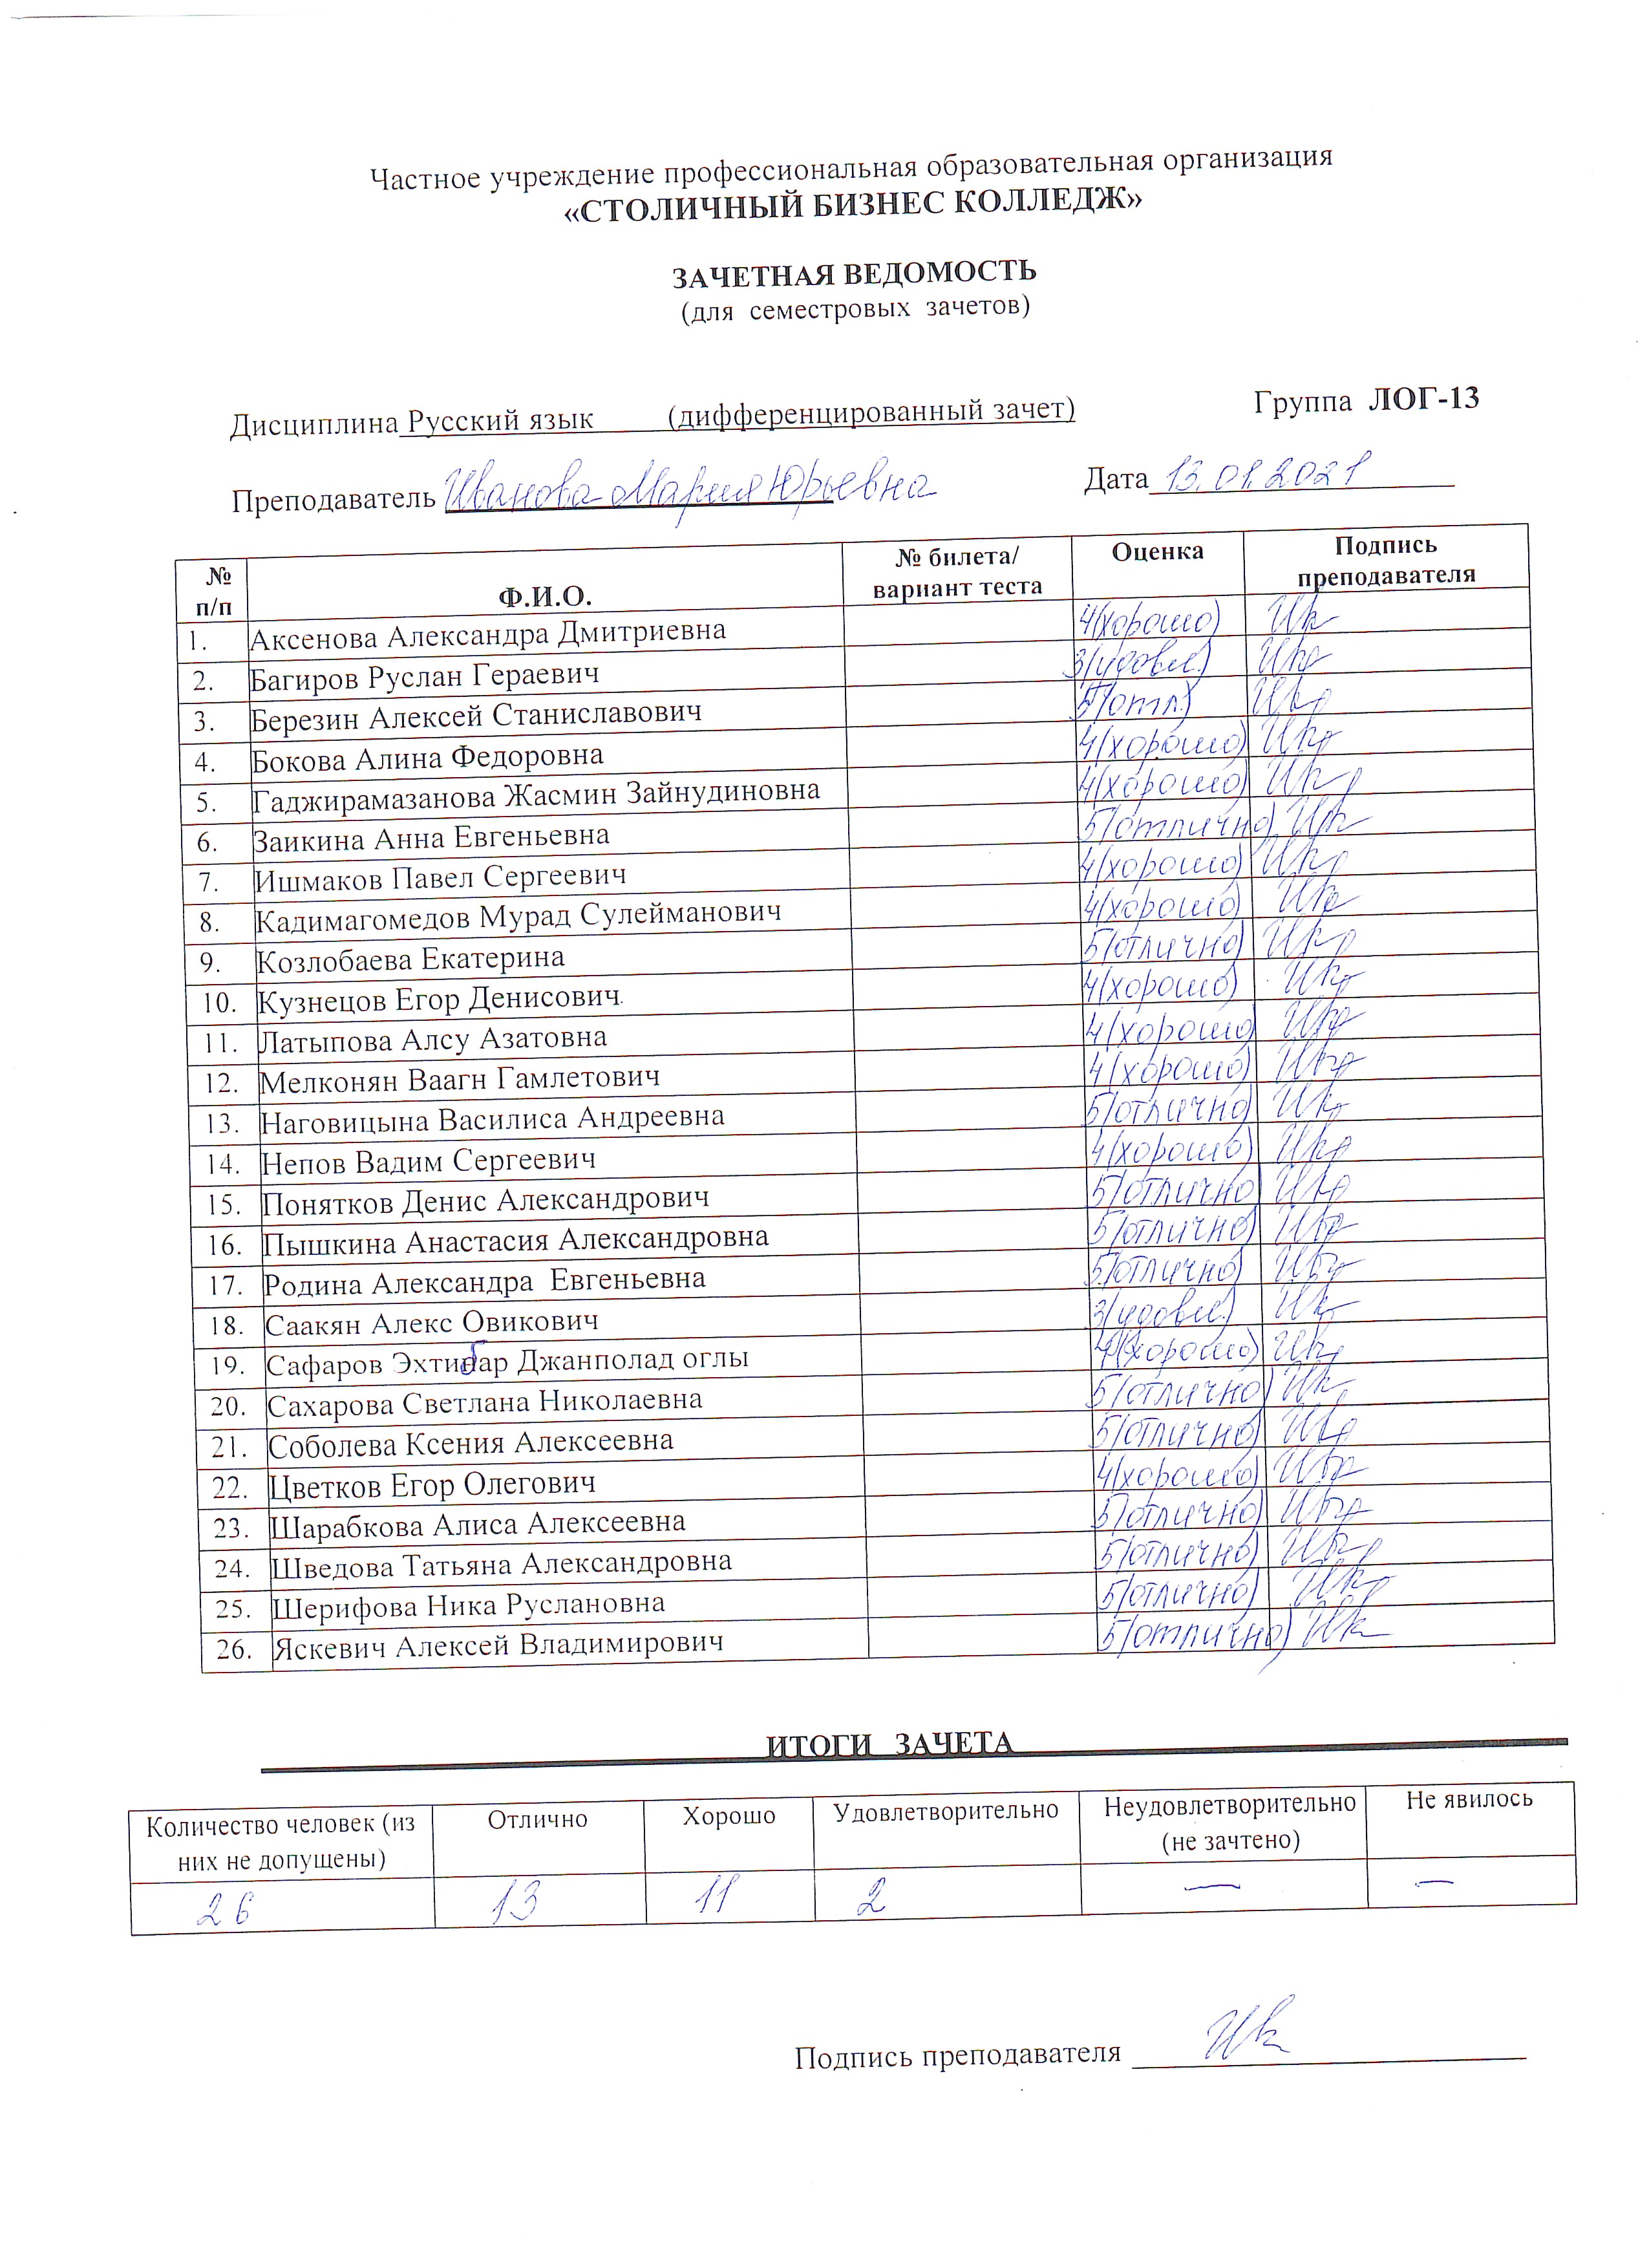 Частное учреждение профессиональная образовательная организация
«СТОЛИЧНЫЙ БИЗНЕС КОЛЛЕДЖ»
ЗАЧЕТНАЯ ВЕДОМОСТЬ
(для семестровых зачетов)
Дисциплина Русский язык (дифференцированный зачет) Группа ЛОГ-13
Преподаватель Иванова Мария Юрьевна Дата 13.01.2021
№ п/п Ф.И.О. № билета/ вариант теста Оценка Подпись преподавателя
1. Аксенова Александра Дмитриевна 4(хорошо)
2. Багиров Руслан Гераевич 3(удовл.)
3. Березин Алексей Станиславович 5(отл.)
4. Бокова Алина Федоровна 4(хорошо)
5. Гаджирамазанова Жасмин Зайнудиновна 4(хорошо)
6. Заикина Анна Евгеньевна 5(отлично)
7. Ишмаков Павел Сергеевич 4(хорошо)
8. Кадимагомедов Мурад Сулейманович 4(хорошо)
9. Козлобаева Екатерина 5(отлично)
10. Кузнецов Егор Денисович 4(хорошо)
11. Латыпова Алсу Азатовна 4(хорошо)
12. Мелконян Ваагн Гамлетович 4(хорошо)
13. Наговицына Василиса Андреевна 5(отлично)
14. Непов Вадим Сергеевич 4(хорошо)
15. Понятков Денис Александрович 5(отлично)
16. Пышкина Анастасия Александровна 5(отлично)
17. Родина Александра Евгеньевна 5(отлично)
18. Саакян Алекс Овикович 3(удовл.)
19. Сафаров Эхтибар Джанполад оглы 4(хорошо)
20. Сахарова Светлана Николаевна 5(отлично)
21. Соболева Ксения Алексеевна 5(отлично)
22. Цветков Егор Олегович 4(хорошо)
23. Шарабкова Алиса Алексеевна 5(отлично)
24. Шведова Татьяна Александровна 5(отлично)
25. Шерифова Ника Руслановна 5(отлично)
26. Яскевич Алексей Владимирович 5(отлично)
ИТОГИ ЗАЧЕТА
Количество человек (из них не допущены) Отлично Хорошо Удовлетворительно Неудовлетворительно (не зачтено) Не явилось
26 13 11 2 — —
Подпись преподавателя